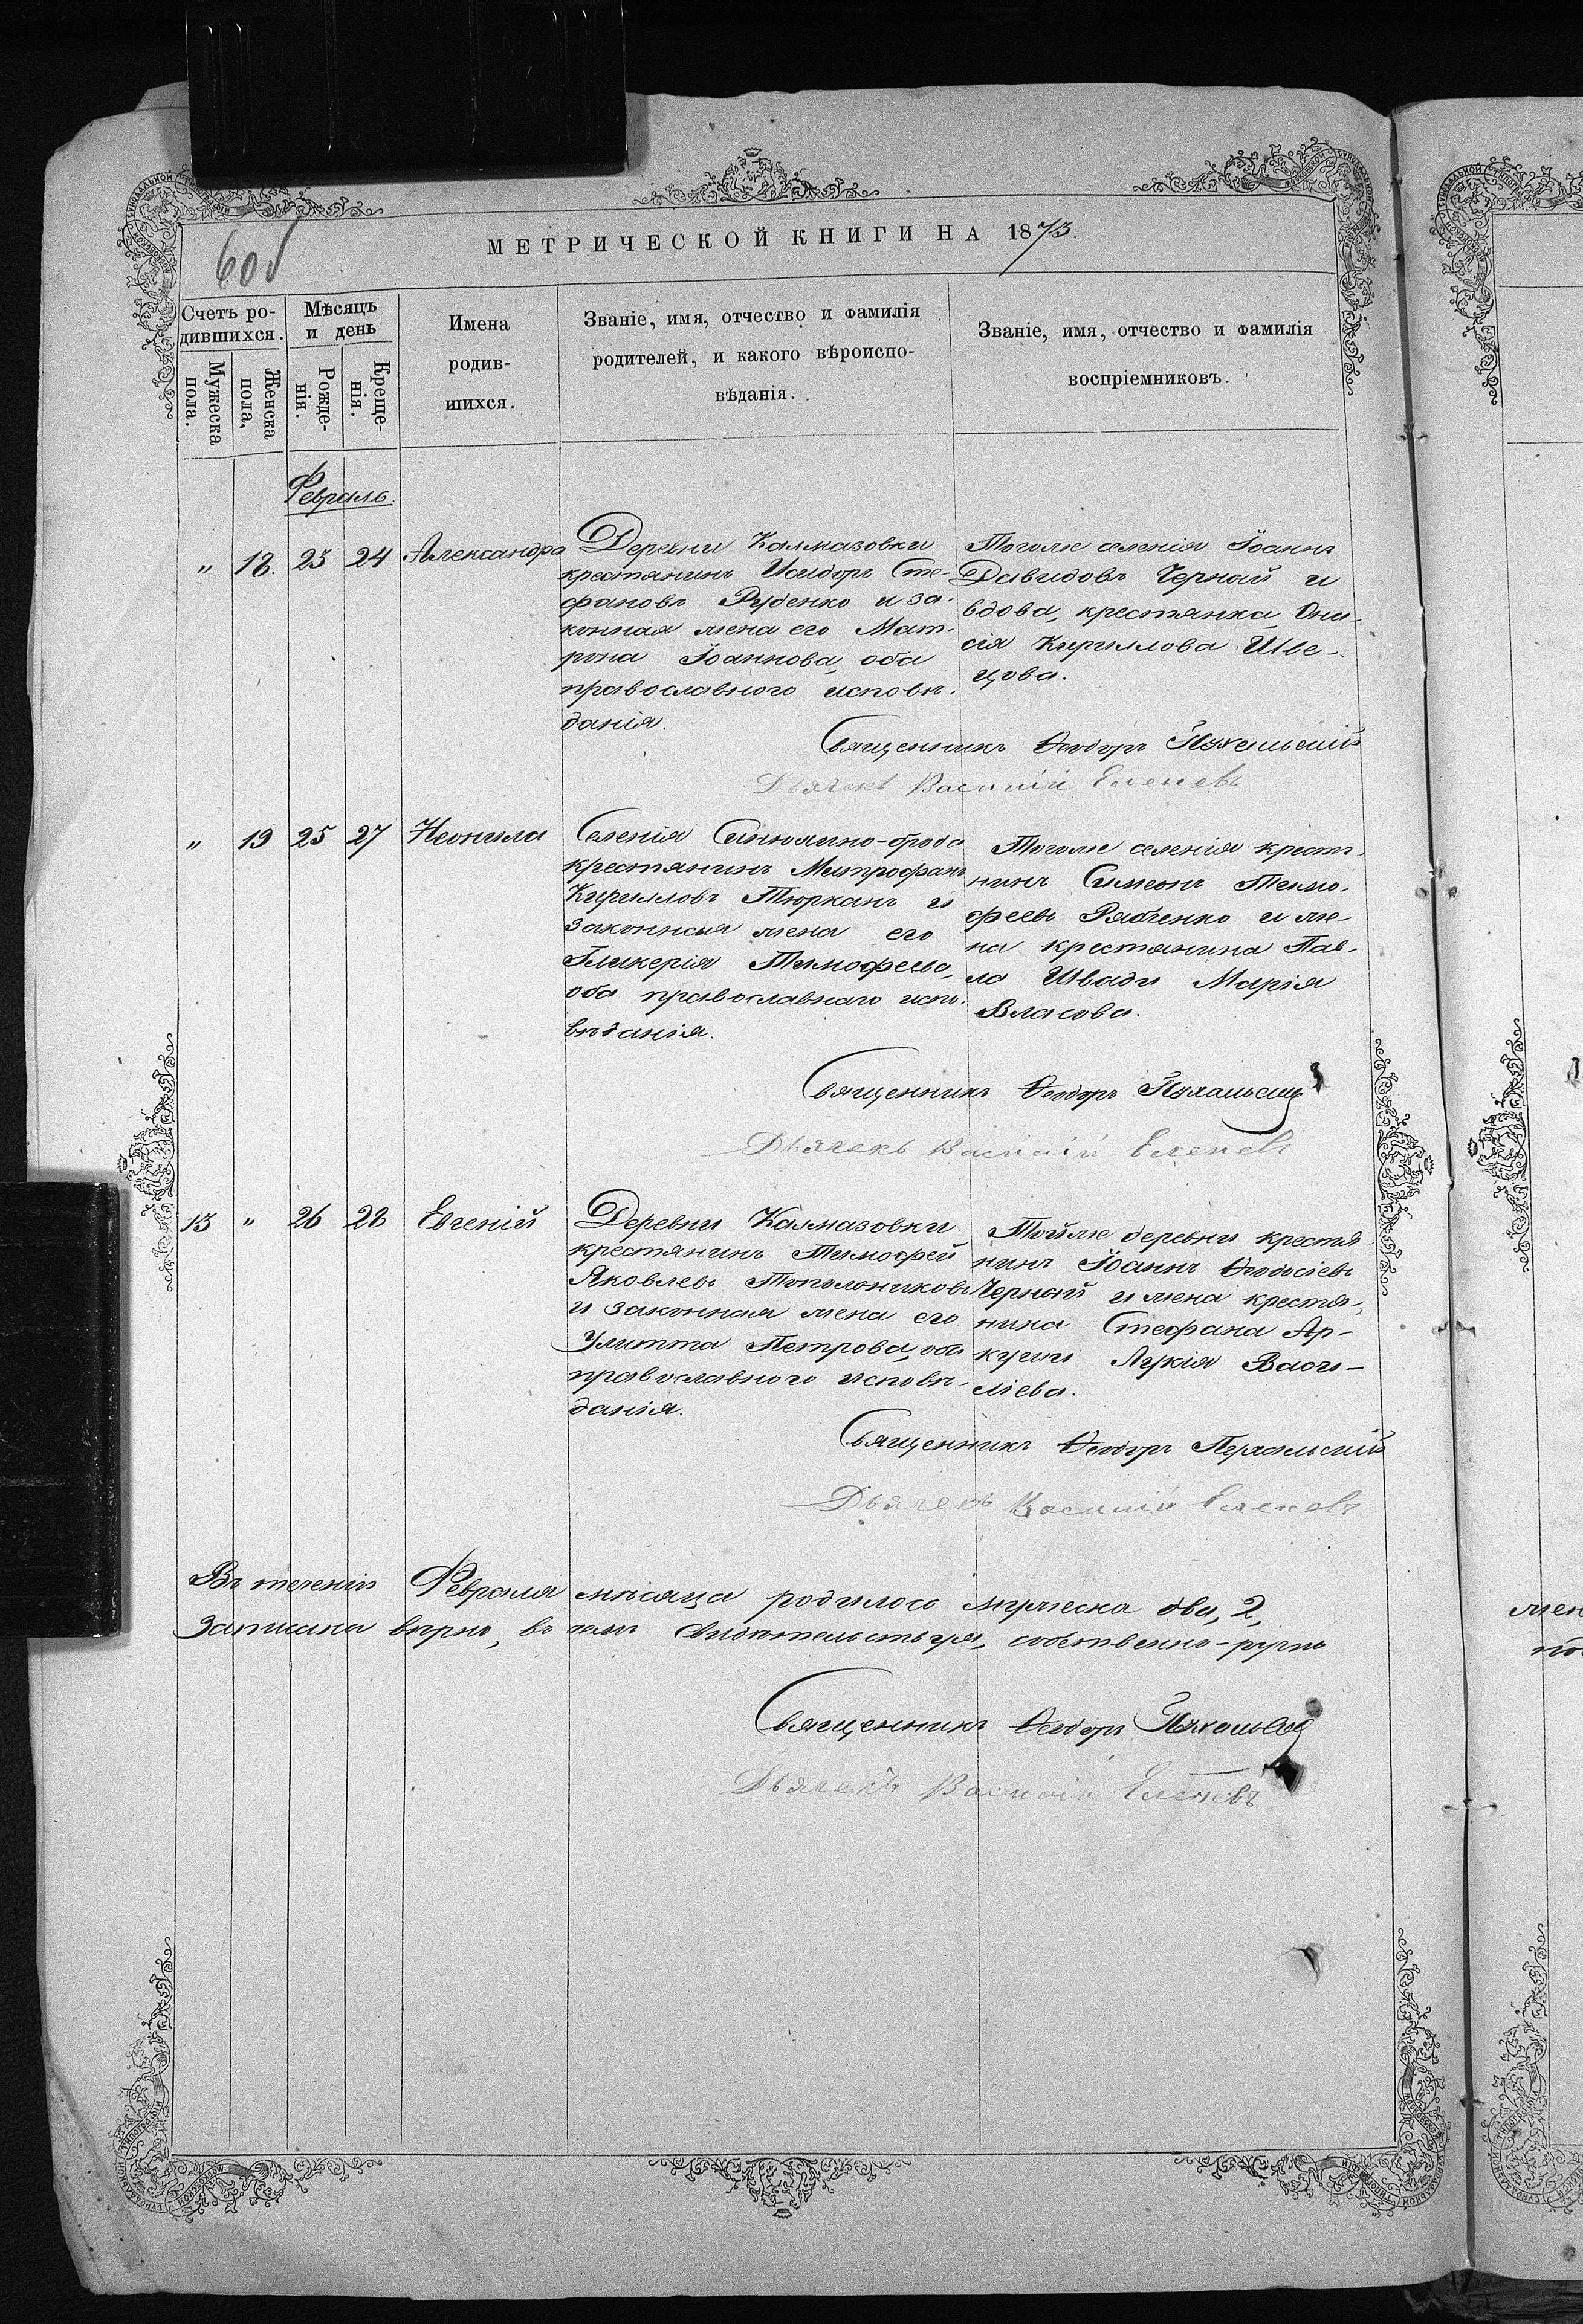 60
МЕТРИЧЕСКОЙ КНИГИ НА 1873.
Счетъ ро-
дившихся.
Мѣсяцъ
и день
Имена
родив-
шихся.
Званіе, имя, отчество и фамилія
родителей, и какого вѣроиспо-
вѣданія.
Званіе, имя, отчество и фамилія
воспріемниковъ.
Мужеска
пола.
Женска
пола,
Рожде-
нія.
Креще-
нія.
Февраль.
" 18. 23 24 Александра
Деревни Калмазовки
крестянинъ Исидоръ Сте-
фановъ Руденко и за-
конная жена его Мат-
рона Іоаннова, оба
православного исповѣ-
данія.
Тогоже селенія Іоаннъ
Давидовъ Черный и
вдова, крестянка, Они-
сія Кириллова Шве-
цова.
Священникъ Ѳеодоръ
Дьячекъ Василій
" 19 25 27 Неонила
Селенія Синюхино-брода
крестянинъ Митрофанъ
Кирилловъ Тюрканъ и
законная жена его
Гликерія Тимофеева,
оба православнаго испо-
вѣданія.
Тогоже селенія крестя-
нинъ Симеонъ Тимо-
феевъ Рябченко и же-
на крестянина Пав-
ла Швади Марія
Власова.
Священникъ Ѳеодоръ
Дьячекъ Василій
13 " 26 28 Евгеній
Деревни Калмазовки
крестянинъ Тимофей
Яковлевъ Тополониковъ
и законная жена его
Улитта Петрова, оба
православного исповѣ-
данія.
Тойже деревни крестя-
нинъ Іоаннъ Ѳеодосіевъ
Черный и жена крестя-
нина Стефана Ар-
куши Лукія Васи-
ліева.
Священникъ Ѳеодоръ
Дьячекъ Василій
Въ теченіи Февраля мѣсяца родилось мужеска два, 2,
Записана вѣрно, въ томъ свидѣтельствуя, собственно-ручно
Священникъ Ѳеодоръ
Дьячекъ Василій